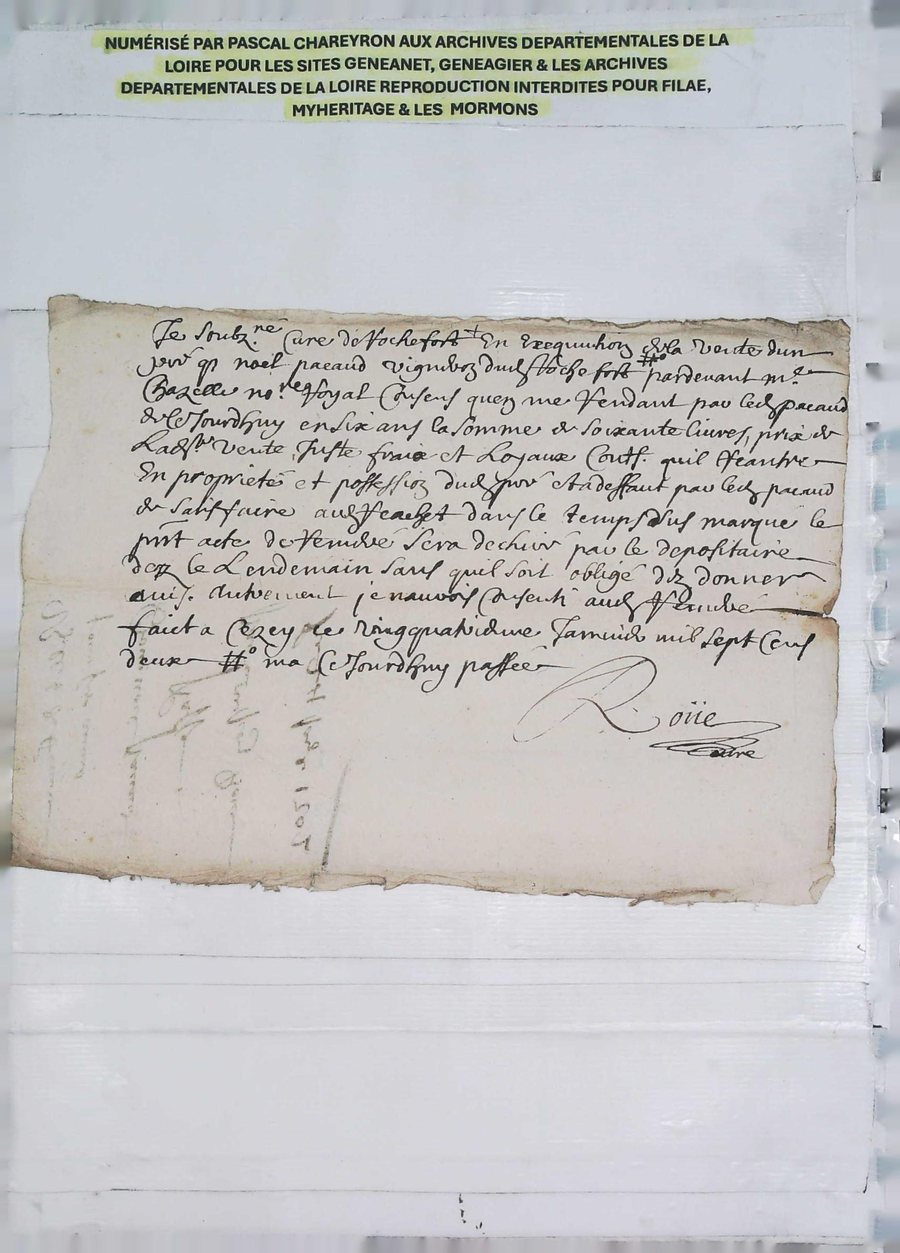 NUMÉRISÉ PAR PASCAL CHAREYRON AUX ARCHIVES DEPARTEMENTALES DE LA
LOIRE POUR LES SITES GENEANET, GENEAGIER & LES ARCHIVES
DEPARTEMENTALES DE LA LOIRE REPRODUCTION INTERDITES POUR FILAE,
MYHERITAGE & LES MORMONS
Je soubz.né Curé de Rochefort En Exequution de la vente dun
pré q noel pacaud vigneron dud Rochefort pardevant me
Chazelle nore Royal Consens quen me Rendant par led pacaud
de ce Jourdhuy en six ans la somme de soixante livres, prix de
Lad vente Juste fraix et Loyaux Couts. quil Reantre
En proprietés et possession dud pré et a deffaut par led pacaud
de satisfaire aud Reachet dans le temps dsus marqué le
pnt acte de Remeré sera dechiré par le depositaire
dez le Lendemain sans quil soit obligé dez donner
avis. Autrement je nauvois Consenti aud Remeré
faict a Cezey ce vingquatrieme Janvier mil sept Cens
deux #o ma Ce Jourdhuy passée
Roüe
Curé